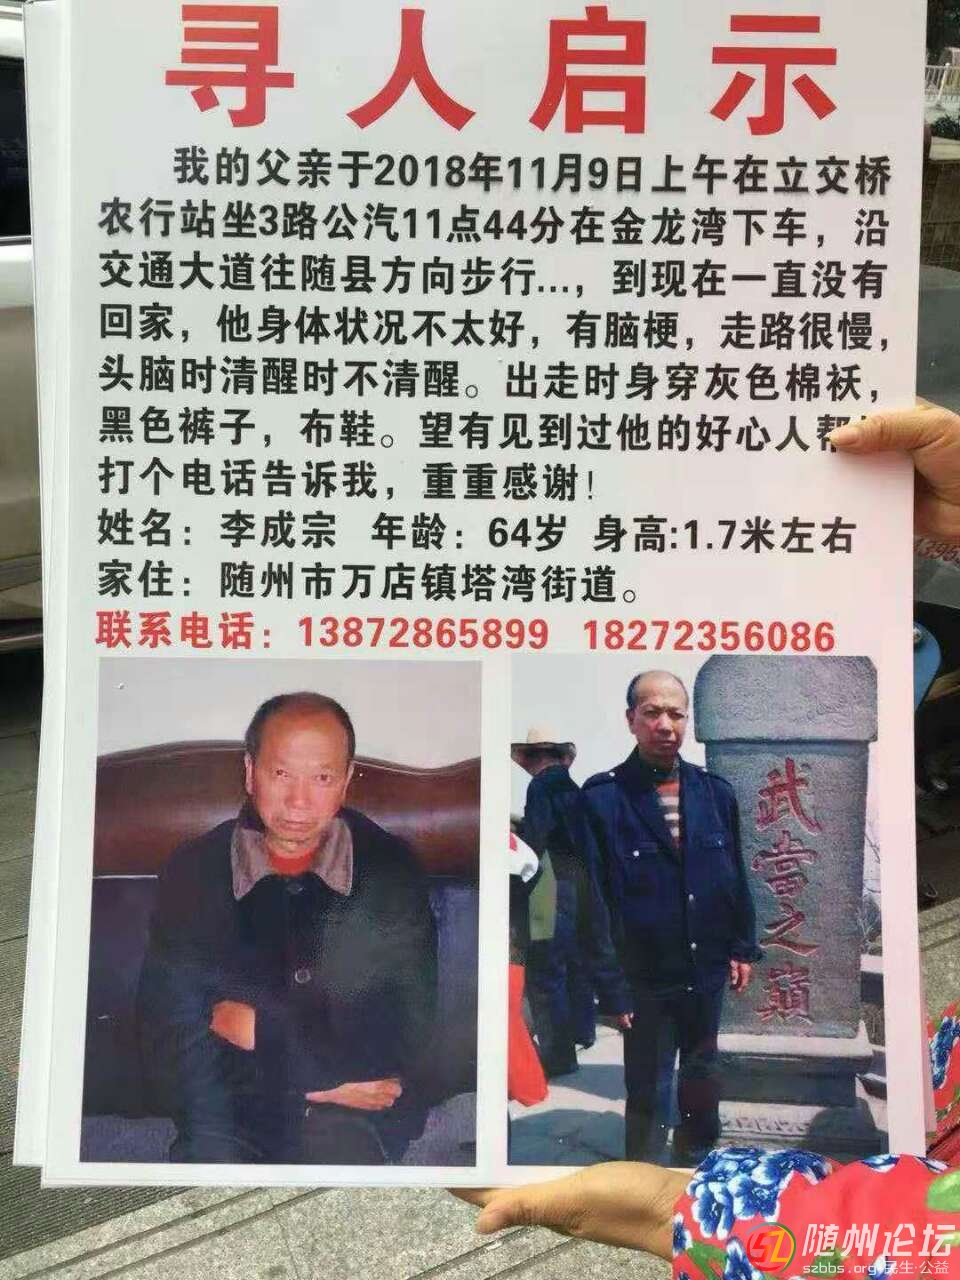 寻人启示
我的父亲于2018年11月9日上午在立交桥
农行站坐3路公汽11点44分在金龙湾下车，沿
交通大道往随县方向步行...，到现在一直没有
回家，他身体状况不太好，有脑梗，走路很慢，
头脑时清醒时不清醒。出走时身穿灰色棉袄，
黑色裤子，布鞋。望有见到过他的好心人帮
打个电话告诉我，重重感谢！
姓名：李成宗 年龄：64岁 身高:1.7米左右
家住：随州市万店镇塔湾街道。
联系电话：13872865899 18272356086
武当之巅
随州论坛
szbbs.org|民生·公益